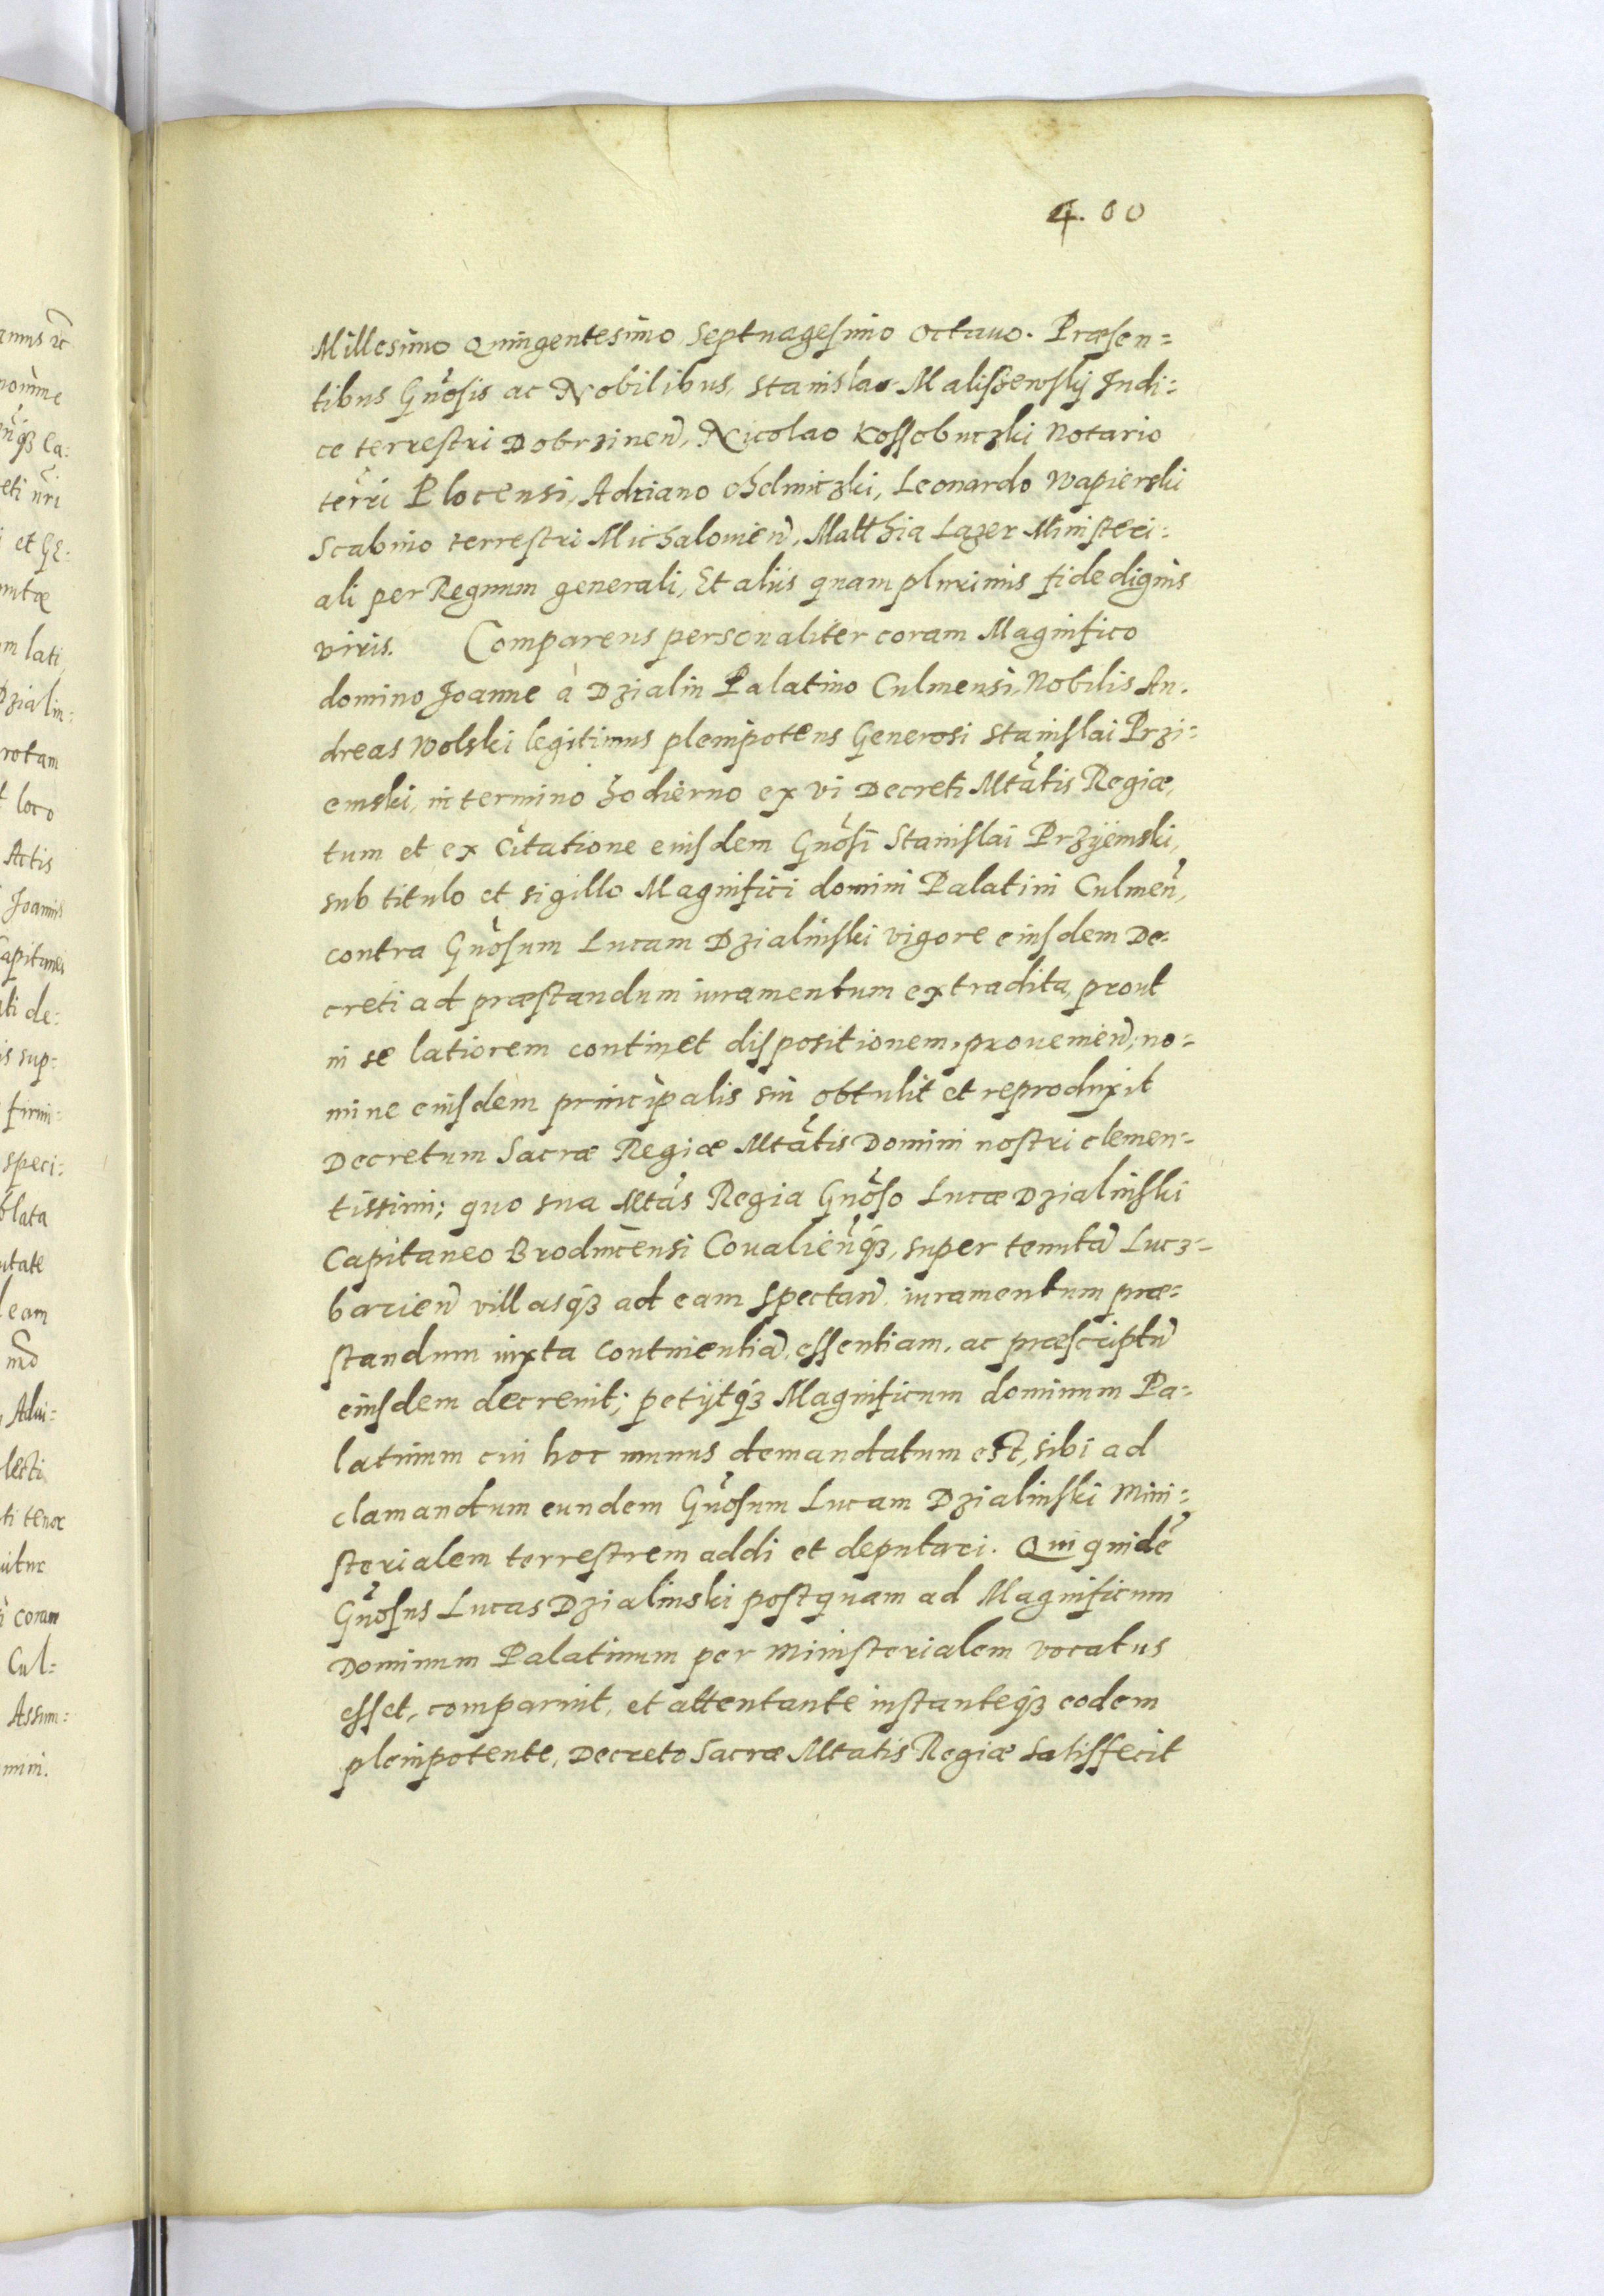 400
Millesimo Quingentesimo Septuagesimo octauo. Præsen=
tibus Gnosis ac Nobilibus, Stanislao Maliszewskij Iudi=
ce terrestri Dobrzinen, Nicolao Kossobuczki Notario
terri Plocensi, Adriano Chelmiczki, Leonardo Wapierski
Scabino terrestri Michalouien, Matthia Lazer Ministeri=
ali per Regnum generali, Et aliis quam plurimis fide dignis
viris. Comparens personaliter coram Magnifico
domino Joanne à Dzialin Palatino Culmensi, Nobilis An=
dreas Wolski legitimus plenipotens Generosi Stanislai Przi=
emski, in termino hodierno ex vi Decreti Mtatis Regiæ,
tum et ex Citatione eiusdem Gnosi Stanislai Przÿemski,
sub titulo et sigillo Magnifici domini Palatini Culmen,
contra Gnosum Lucam Dzialinski vigore eiusdem De=
creti ad præstandum iuramentum extradita, prout
in se latiorem continet dispositionem, prouenien, no=
mine eiusdem principalis sui obtulit et reproduxit
Decretum Sacræ Regiæ Mtatis Domini nostri clemen=
tissimi; quo sua Mtas Regia Gnoso Lucæ Dzialinski
Capitaneo Brodnicensi Coualienq3, super tenuta Lucz=
barien villasq3 ad eam spectan, iuramentum præ=
standum iuxta Continentia, essentiam, ac præscriptu
eiusdem decreuit; petÿtq3 Magnificum dominum Pa=
latinum cui hoc munus demandatum est, sibi ad
clamandum eundem Gnosum Lucam Dzialinski Mini=
sterialem terrestrem addi et deputari. Qui quide
Gnosus Lucas Dzialinski postquam ad Magnificum
Dominum Palatinum per Ministerialem vocatus
esset, comparuit, et attentante instanteq3 eodem
plenipotente, Decreto Sacræ Mtatis Regiæ Satisfecit